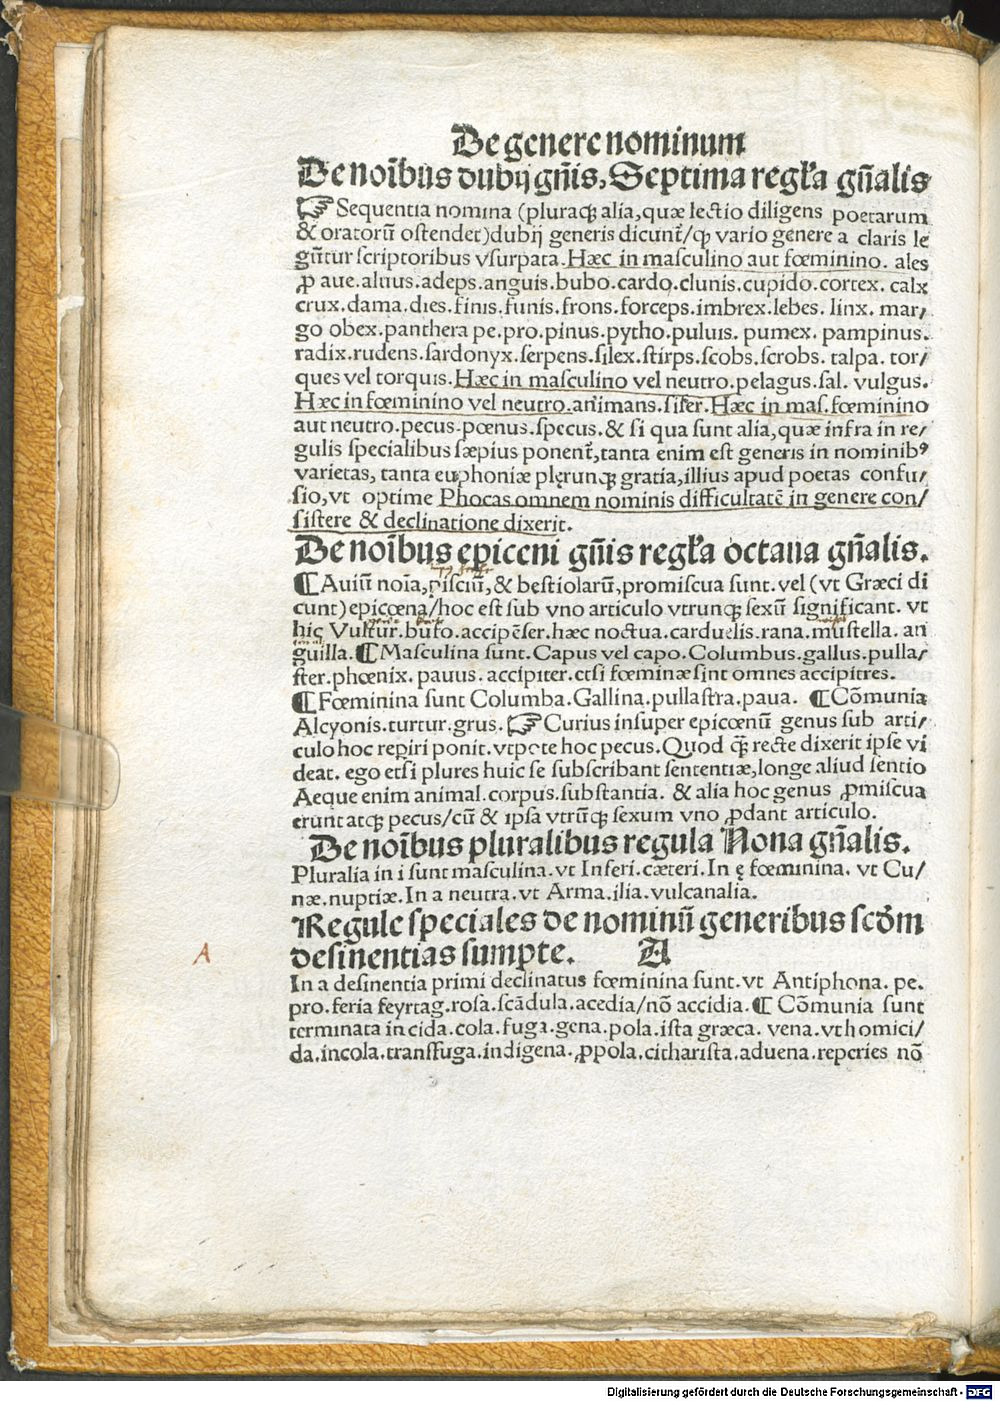 De genere nominum
De noĩbus dubij gñis, Septima regła gñalis
☞ Sequentia nomina (pluraqꝫ alia, quæ lectio diligens poetarum
& oratorũ ostendet) dubij generis dicunt̃/ꝙ vario genere a claris le
gũtur scriptoribus vsurpata. Hæc in masculino aut fœminino. ales
ꝓ aue. aluus. adeps. anguis. bubo. cardo. clunis. cupido. cortex. calx
crux. dama. dies. finis. funis. frons. forceps. imbrex. lebes. linx. mar/
go obex. panthera pe. pro. pinus. pytho. puluis. pumex. pampinus.
radix. rudens. sardonyx. serpens. silex. stirps. scobs. scrobs. talpa. tor/
ques vel torquis. Hæc in masculino vel neutro. pelagus. sal. vulgus.
Hæc in fœminino vel neutro. animans. siler. Hæc in mas. fœminino
aut neutro. pecus. pœnus. specus. & si qua sunt alia, quæ infra in re/
gulis specialibus sæpius ponent̃, tanta enim est generis in nominibꝰ
varietas, tanta euphoniæ plęrunqꝫ gratia, illius apud poetas confu/
sio, vt optime Phocas omnem nominis difficultatẽ in genere con/
sistere & declinatione dixerit.
De noĩbus epiceni gñis regła octaua gñalis.
¶ Auiũ noĩa, pisciũ, & bestiolarũ, promiscua sunt. vel (vt Græci di
cunt) epicœna/hoc est sub vno articulo vtrunqꝫ sexũ significant. vt
hic Vultur. bufo. accipẽser. hæc noctua. carduelis. rana. mustella. an
guilla. ¶ Masculina sunt. Capus vel capo. Columbus. gallus. pulla/
ster. phœnix. pauus. accipiter. etsi fœminæ sint omnes accipitres.
¶ Fœminina sunt Columba. Gallina. pullastra. paua. ¶ Cõmunia
Alcyonis. turtur. grus. ☞ Curius insuper epicœnũ genus sub arti/
culo hoc repiri ponit. vtpote hoc pecus. Quod q̃ꝫ recte dixerit ipse vi
deat. ego etsi plures huic se subscribant sententiæ, longe aliud sentio
Aeque enim animal. corpus. substantia. & alia hoc genus ꝓmiscua
erunt atqꝫ pecus/cũ & ipsa vtrũqꝫ sexum vno ꝓdant articulo.
De noĩbus pluralibus regula Nona gñalis.
Pluralia in i sunt masculina. vt Inferi. cæteri. In ę fœminina. vt Cu/
næ. nuptiæ. In a neutra. vt Arma. ilia. vulcanalia.
Regule speciales de nominũ generibus scđm
desinentias sumpte. A
A
In a desinentia primi declinatus fœminina sunt. vt Antiphona. pe.
pro. feria feyrtag. rosa. scãdula. acedia/nõ accidia. ¶ Cõmunia sunt
terminata in cida. cola. fuga. gena. pola. ista græca. vena. vt homici/
da. incola. transfuga. indigena. ꝓpola. citharista. aduena. reperies nõ
Digitalisierung gefördert durch die Deutsche Forschungsgemeinschaft - DFG